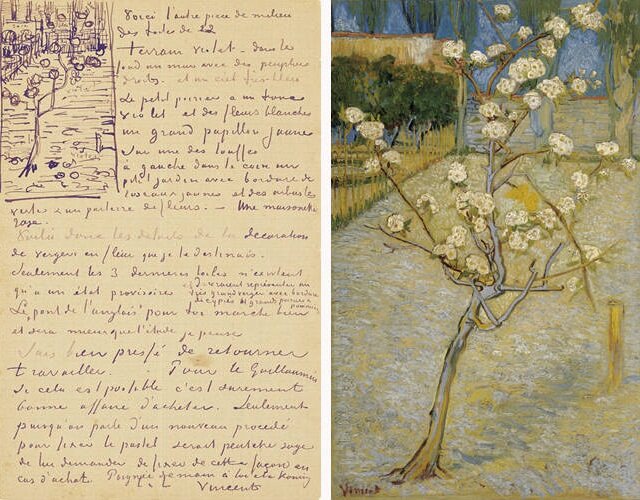 Voici l'autre pièce de milieu
des toiles de 12
terrain violet – dans le
fond un mur avec des peupliers
droits – et un ciel très bleu
Le petit poirier a un tronc
violet et des fleurs blanches
un grand papillon jaune
sur une des touffes
à gauche dans le coin un
petit jardin avec bordure de
roseaux jaunes et des arbustes
verts & un parterre de fleurs. – Une maisonette
rose.
Voilà donc les details de la decoration
de vergers en fleur que je te destinais.
Seulement les 3 dernieres toiles n'existent
qu'à un état provisoire & devraient représenter un
très grand verger avec bordure
de cyprès & grands poiriers &
pommiers
Le "pont de l'anglois" pour toi marche bien
et sera mieux que l'étude je pense
Suis bien pressé de retourner
travailler. Pour le Guillaumin
si cela est possible c'est surement
bonne affaire d'acheter. Seulement
puisqu'on parle d'un nouveau procédé
pour fixer le pastel serait peutetre sage
de lui demander de fixer de cette façon en
cas d'achat. Poignée de main à toi et à Koning
Vincent
Vincent